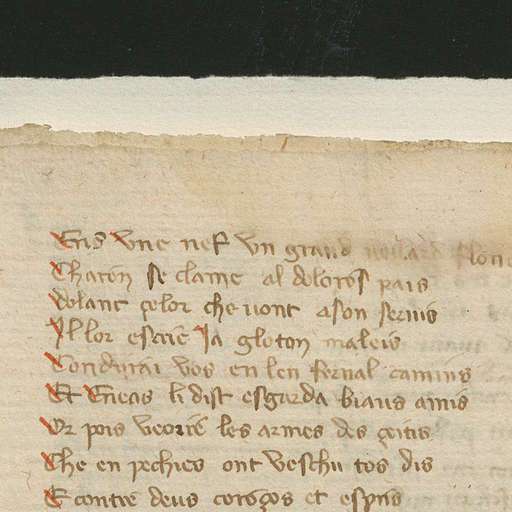 Ens vne nef vn grand
Charon se clame al doloros pais
dolant celor che uont a son seruis
Il lor escrie Ja gloton maleis
Condurai vos en len fernal camins
Et Eneas li dist esgarda biaus amis
Or pois veoire les armes des çeitis
Che en pechies ont veschu tos dis
E contre deus coroços et espris